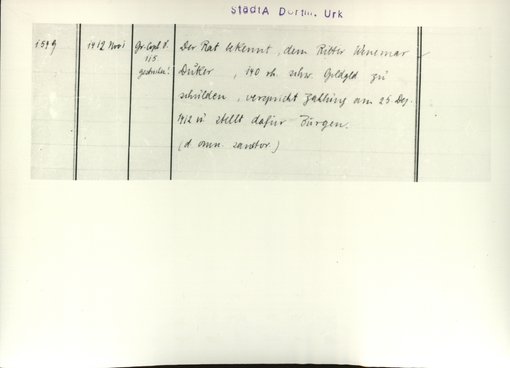 StadtA Dortm. Urk
1599
1412 Nov 1
Gr. Copb I.
115
gestrichen!
Der Rat bekennt, dem Ritter Wenemar
Düker, 140 rh. schw. Geldgld zu
schulden, verspricht Zahlung am 25 Dez.
1412 u. stellt dafür Bürgen.
(d. omn. sanctor.)